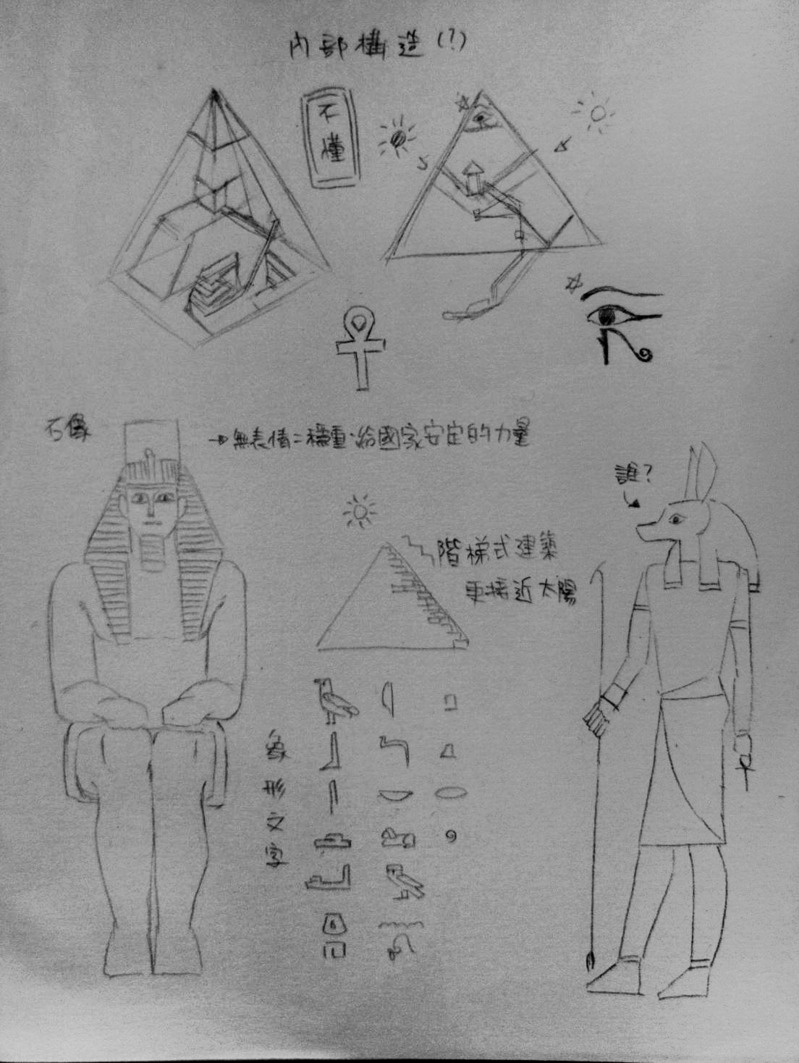 內部構造(?)
不懂
石像
→無表情=穩重.給國家安定的力量
誰?
階梯式建築
更接近太陽
象形文字